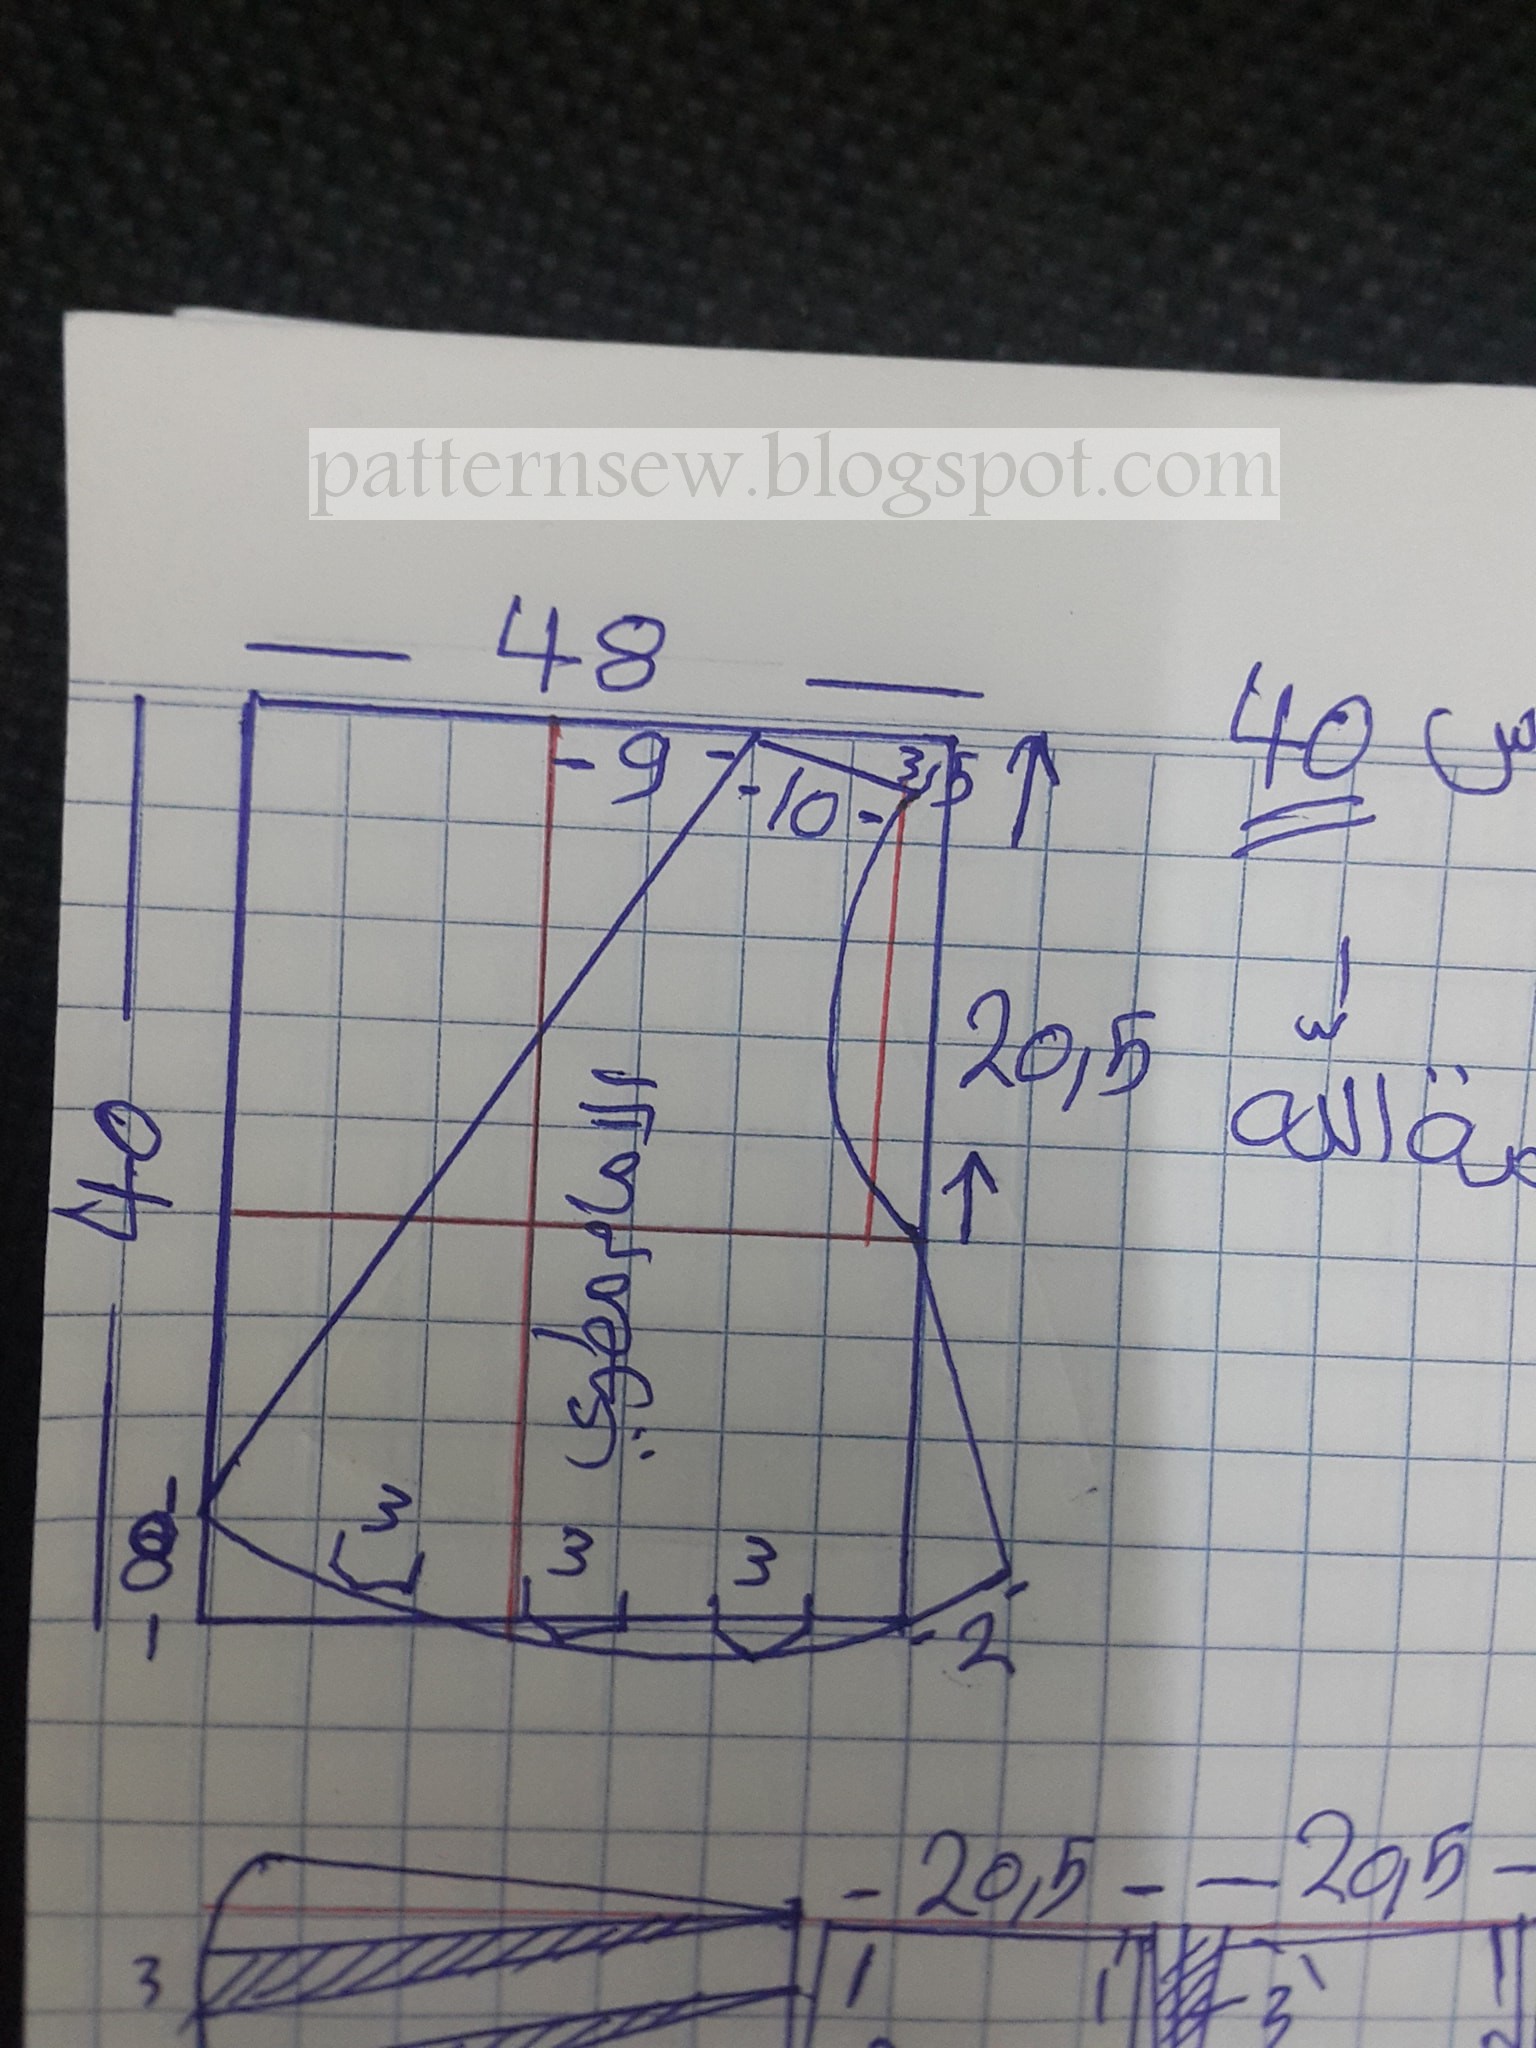 patternsew.blogspot.com
48
40 س
- 9 -
3,5
- 10 -
20,5
40
الأمامي
8
3
3
3
- 2
- 20,5 -
- 20,5 -
3
1
1
3
1